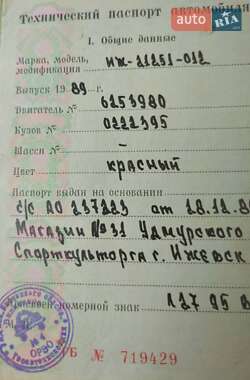 AUTO RIA
Технический паспорт автомобиля
I. Общие данные
Марка, модель,
модификация ИЖ-21251-012
Выпуск 1989 г.
Двигатель № 6253980
Кузов № 0222395
Шасси № —
Цвет красный
Паспорт выдан на основании
с/с АО 227223 от 28.12.8
Магазин №31 Удмурского
Спорткультторга г. Ижевск
номерной знак 127 95
ГБ № 719429